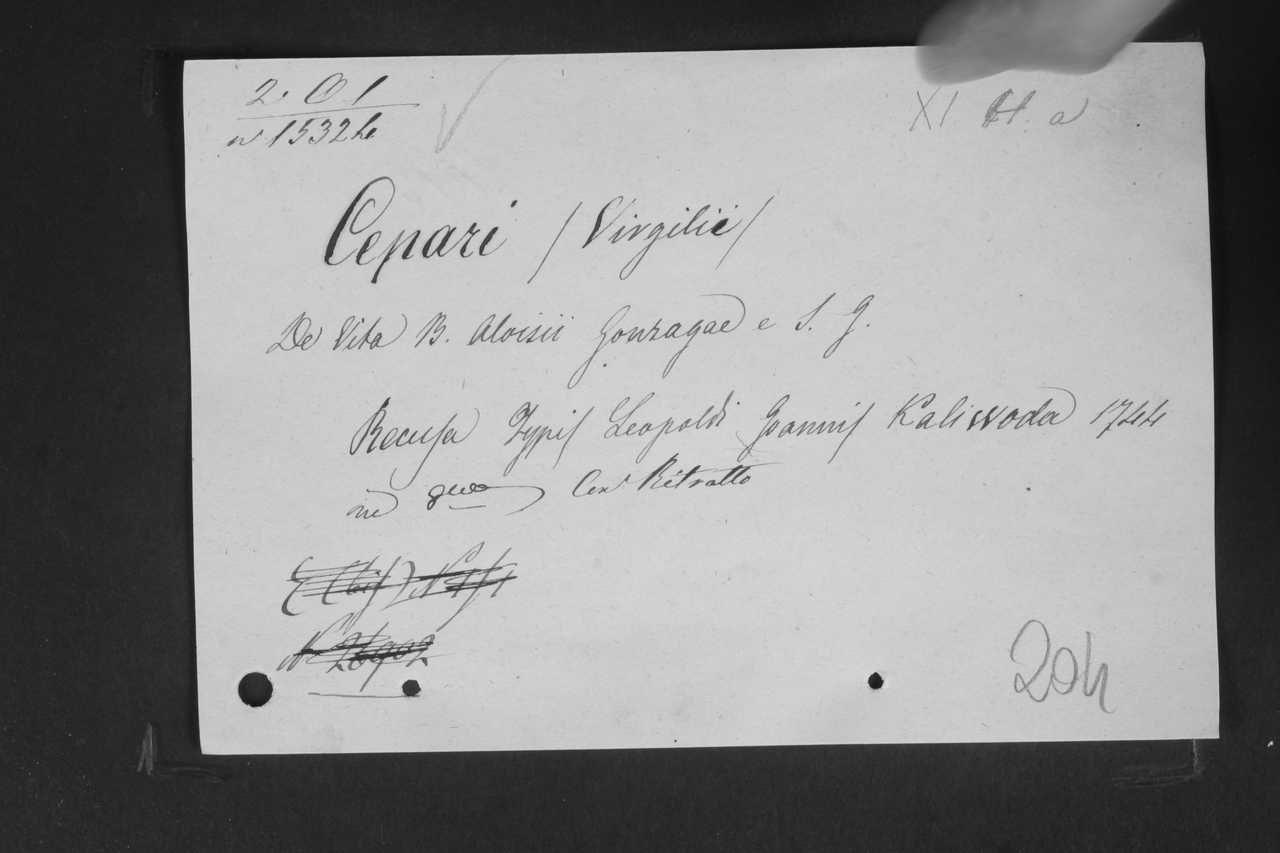 2. O 1
n 15322
XI H. a
Cepari /Virgilii/
De Vita B. Aloisii Gonzagae e S. J.
Recusa Typis Leopoldi Joannis Kaliwoda 1744
in 8vo Con Ritratto
N 26902
204